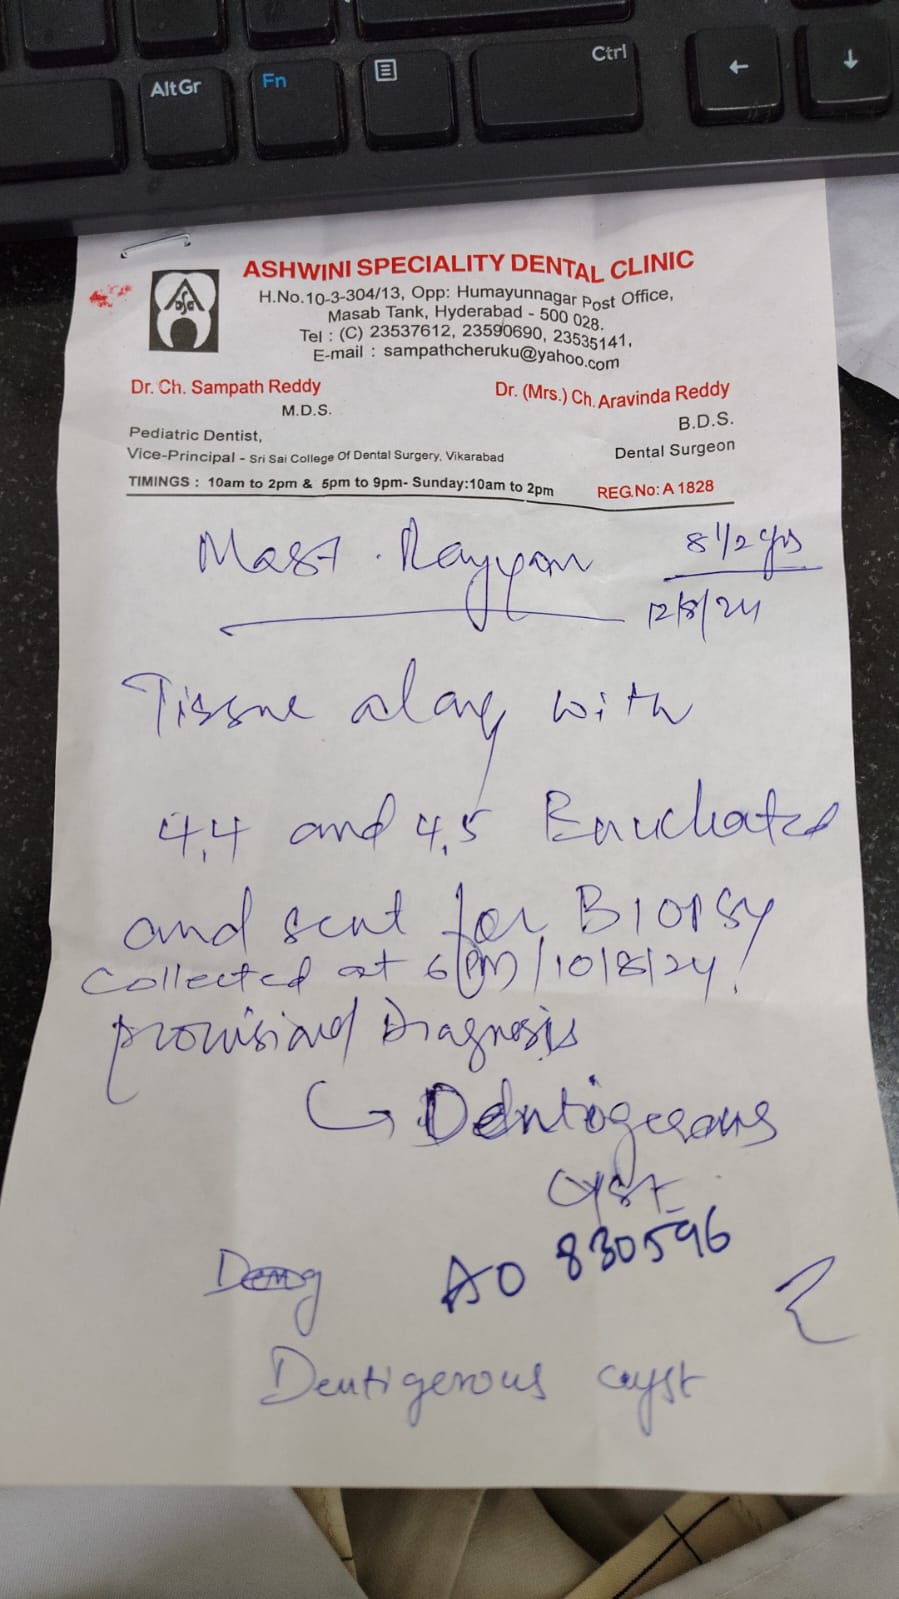 AltGr
Fn
Ctrl
←
↓
ASHWINI SPECIALITY DENTAL CLINIC
H.No.10-3-304/13, Opp: Humayunnagar Post Office,
Masab Tank, Hyderabad - 500 028.
Tel : (C) 23537612, 23590690, 23535141,
E-mail : sampathcheruku@yahoo.com
Dr. Ch. Sampath Reddy
M.D.S.
Pediatric Dentist,
Vice-Principal - Sri Sai College Of Dental Surgery, Vikarabad
Dr. (Mrs.) Ch. Aravinda Reddy
B.D.S.
Dental Surgeon
TIMINGS : 10am to 2pm & 5pm to 9pm- Sunday:10am to 2pm
REG.No: A 1828
Mast. Rayyan 8 1/2 yrs
12/8/24
Tissue along with
4,4 and 4,5 Enucleated
and sent for BIOPSY
Collected at 6 PM/10/8/24!
provisional Diagnosis
↳ Dentigerous
cyst
AO 830596
Dentigerous cyst